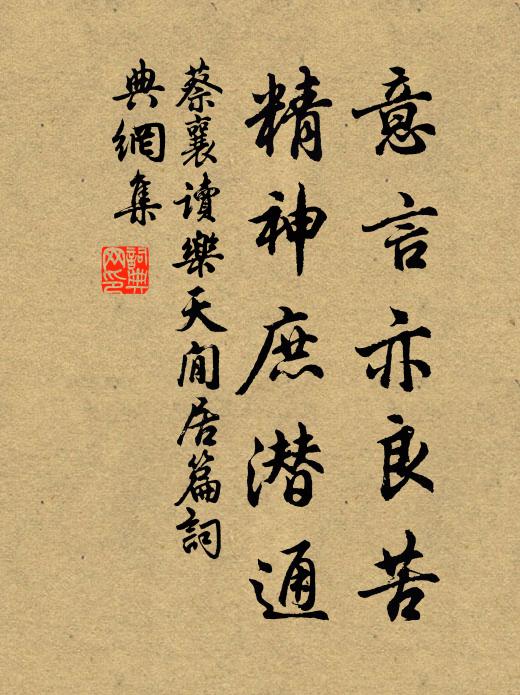 意言亦良苦
精神庶潜通
蔡襄讀樂天閒居篇詞
典網集
詞典網印